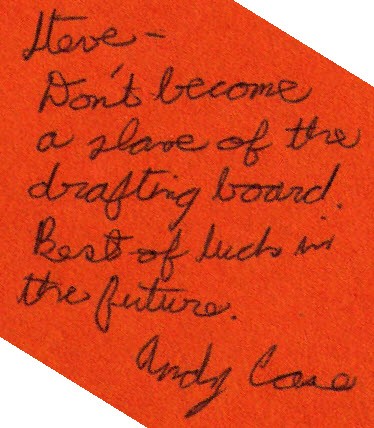 Steve -
Don't become
a slave of the
drafting board.
Best of luck in
the future.
Andy Case